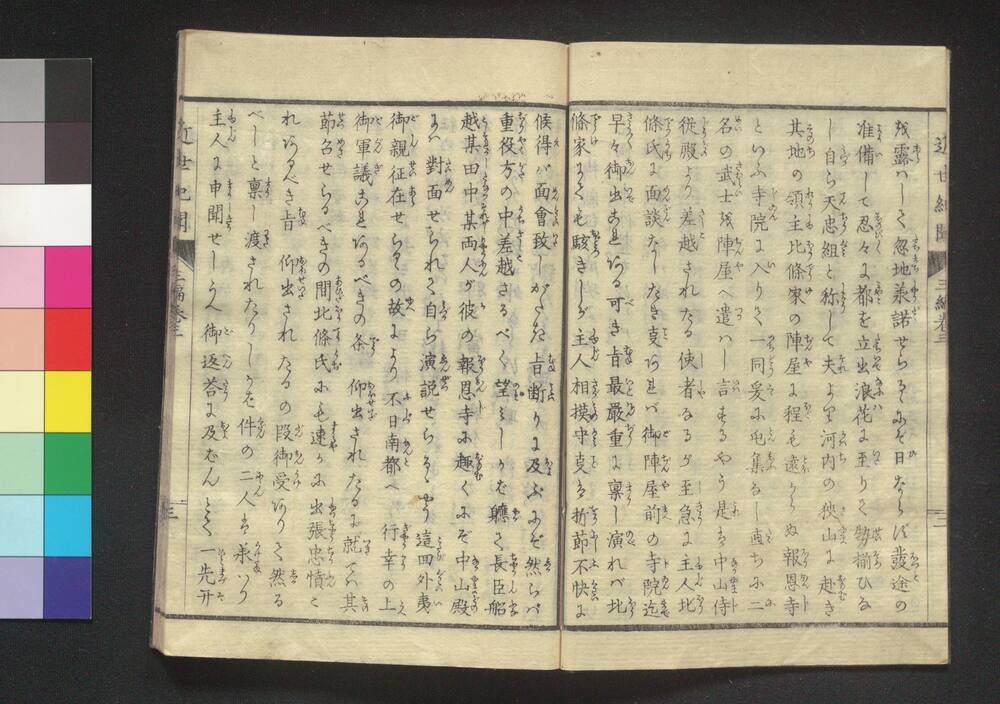 近世紀聞
三編巻三
残露ハしく忽地兼諾せらるゝにぞ日ならず発途の
准備して忍々に都を立出浪花に至りて勢揃ひな
し自ら天忠組と称して夫より河内の狭山に赴き
其地の領主北條家の陣屋に程も遠からぬ報恩寺
といふ寺院に入りて一同爰に屯集なし直ちに二
名の武士を陣屋へ遣ハし言するやう是は中山侍
従殿より差越されたる使者なるが至急に主人北
條氏に面談なしたき事あれバ御陣屋前の寺院迄
早々御出これある可き旨最厳重に稟し演れバ北
條家にても駭きしが主人相摸守事は折節不快に
候得バ面會致しがたき旨断りに及ぶにぞ然らバ
重役方の中差越さるべく望みしかバ軈て長臣船
越某田中某両人が彼の報恩寺に趣くにぞ中山殿
にハ對面せられて自ら演説せらるゝやう這回外夷
御親征在せらるゝの故により不日南都へ 行幸の上
御軍議これあるべきの条 仰出されたるに就てハ其
節召せらるべきの間北條氏にも速かに出張忠情こ
れあるべき旨 仰出されたるの段御受ありて然る
べしと稟し渡されたりしかバ件の二人は承ハり
主人に申聞せしうへ御返答に及ばんとて一先ヅ
近世紀聞
三編巻三
三